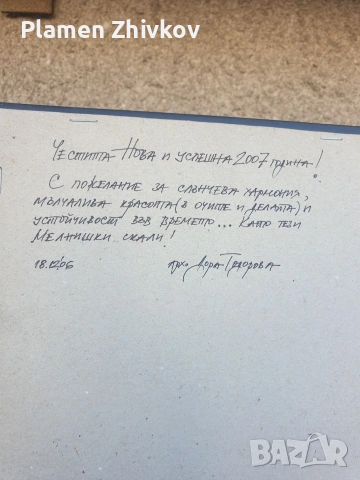 Plamen Zhivkov
Честита Нова и успешна 2007 година!
С пожелание за слънчева хармония,
мълчалива красота (в очите и делата) и
устойчивост във времето... като тези
Мелнишки скали!
18.12.06 арх. Дора Тодорова
BAZAR